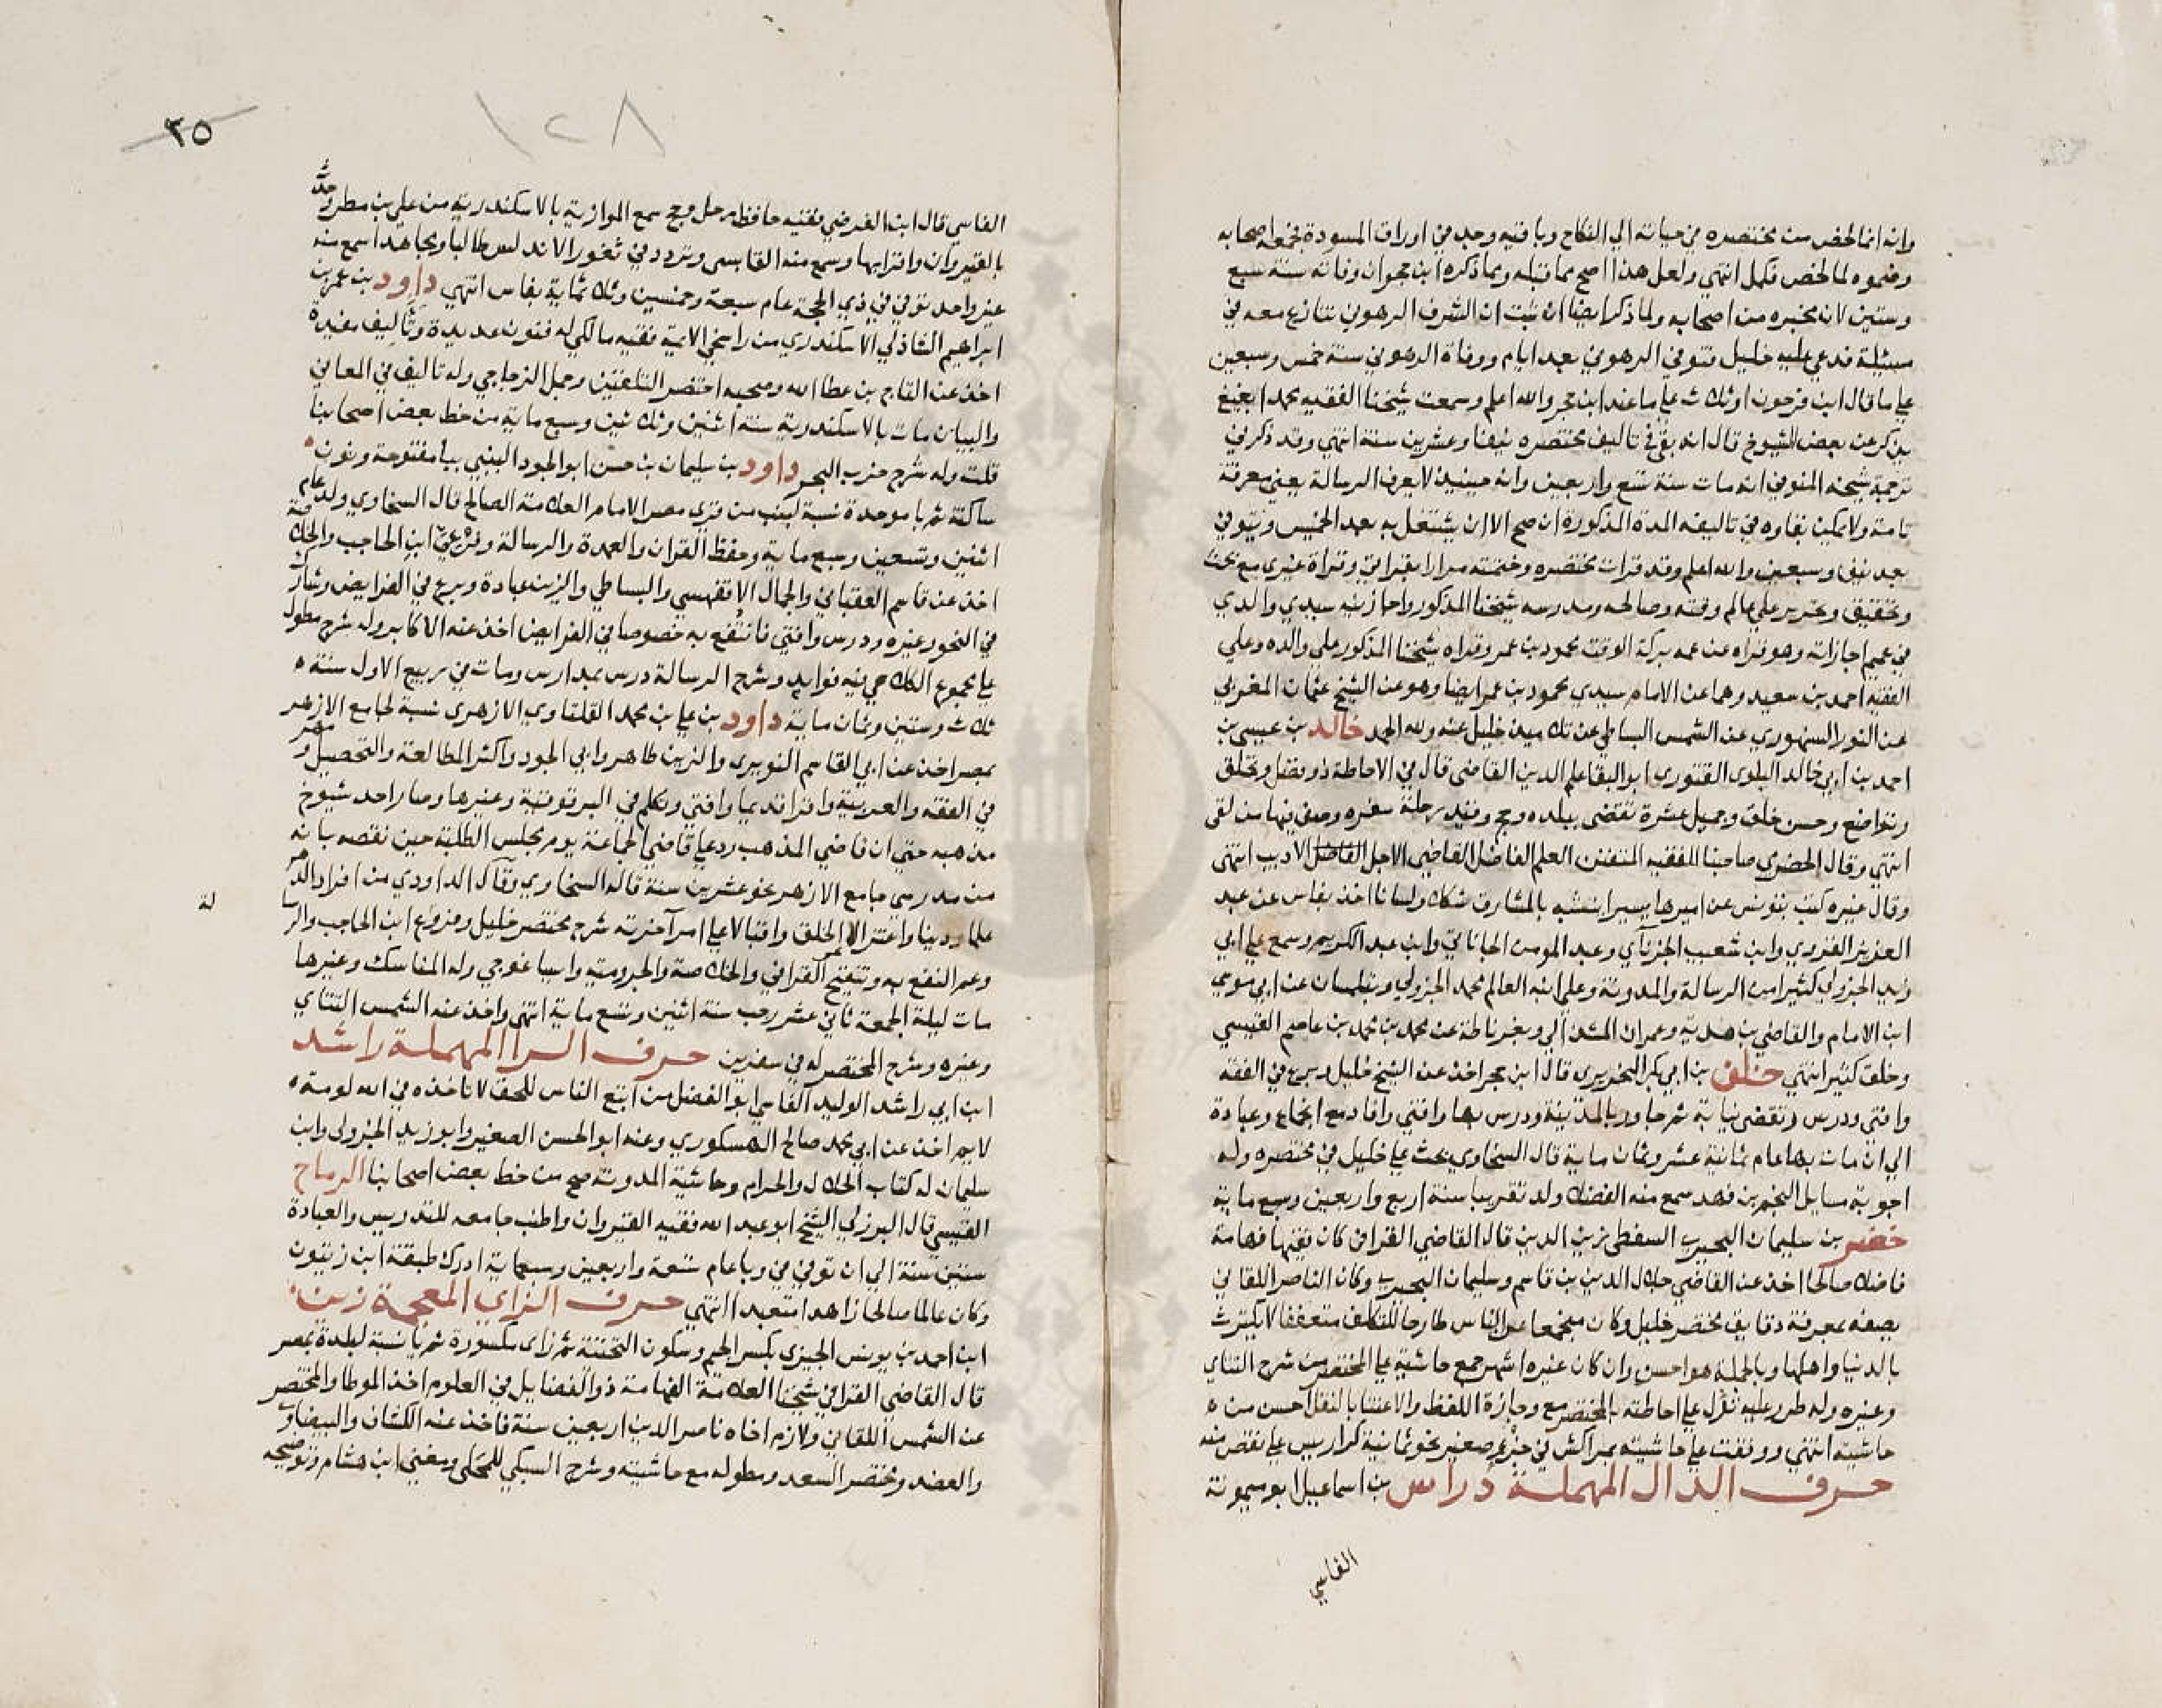 وانه انما لخص من مختصره في حياته الي النكاح وباقيه وجد في اوراق المسودة فجمعه اصحابه
وضموه لما لخص فكمل انتهي ولعل هذا اصح مما قبله ومما ذكره ابن حجر ان وفاته سنة سبع
وستين لان مخبره من اصحابه ولما ذكر ايضا ان ثبت ان الشرف الرهوني تنازع معه في
مسئلة فدعي عليه خليل فتوفي الرهوني بعد ايام ووفاة الرهوني سنة خمس وسبعين
علي ما قال ابن فرحون او ثلاث علي ما عند ابن حجر والله اعلم وسمعت شيخنا الفقيه محمدا بغيغ
يذكر عن بعض الشيوخ قال انه بقي في تاليف مختصره نيفا وعشرين سنة انتهي وقد ذكر في
ترجمة شيخه المنوفي انه مات سنة تسع واربعين وانه حينئذ لا يعرف الرسالة يعني معرفة
تامة ولا يمكن بقاوه في تاليفه المدة المذكورة ان صح الا ان يشتغل به بعد الخمسين ويتوفي
بعد نيف وسبعين والله اعلم وقد قرات مختصره وختمته مرارا بقراتي وقراة غيري مع بحث
وتحقيق وتحرير علي عالم وقته وصالحه ومدرسه شيخنا المذكور واجازنيه سيدي والدي
في عميم اجازاته وهو قراه عن عمه بركة الوقت محمود بن عمر وقراه شيخنا المذكور علي والده وعلي
الفقيه احمد بن سعيد وهما عن الامام سيدي محمود بن عمر ايضا وهو عن الشيخ عثمان المغربي
عن النور السنهوري عن الشمس البساطي عن تلاميذ خليل عنه ولله الحمد خالد بن عيسي بن
احمد بن ابي خالد البلوي القتوري ابو البقا علم الدين القاضي قال في الاحاطة ذو فضل وتخلق
وتواضع وحسن خلق وجميل عشرة تقضي ببلده وحج وقيد رحلة سفره وصف فيها من لقي
انتهي وقال الحضرمي صاحبنا الفقيه المتفنن العلم الفاضل القاضي الاجل الفاضل الاديب انتهي
وقال غيره كتب بتونس عن اميرها يسيرا يتشبه بالمشارقة شكلا ولسانا اخذ بفاس عن عبد
العزيز القروي وابن شعيب الجزنآي وعبد المومن الجاناتي وابن عبد الكريم وسمع علي ابي
زيد الجزولي كثيرا من الرسالة والمدونة وعلي ابنه العالم محمد الجزولي وبتلمسان عن ابي موسي
ابن الامام والقاضي بن هدية وعمران المشدالي وبغرناطة عن محمد بن محمد بن عاصم القيسي
وخلق كثير انتهي خلف بن ابي بكر النحريري قال ابن حجر اخذ عن الشيخ خليل وبرع في الفقه
وافتي ودرس وتقضي نيابة ثم جاور بالمدينة ودرس بها وافتي وافاد مع انجماع وعبادة
الي ان مات بها عام ثمانية عشر وثمان ماية قال السخاوي بحث علي خليل في مختصره وله
اجوبة مسايل النجم بن فهد سمع منه الفضلا ولد تقريبا سنة اربع واربعين وسبع ماية
خضر بن سليمان البحيري السفطي زين الدين قال القاضي القرافي كان فقيها فهامة
فاضلا صالحا اخذ عن القاضي جلال الدين بن قاسم وسليمان البحيري وكان الناصر اللقاني
يصفه بمعرفة دقايق مختصر خليل وكان منجمعا عن الناس طارحا للتكلف متعففا لا يكترث
بالدنيا واهلها وبالجملة هو احسن وان كان غيره اشهر جمع حاشية علي المختصر من شرح التتاي
وغيره وله طرر عليه تدل علي احاطته بالمختصر مع وجازة اللفظ والاعتنا بالنقل احسن من
حاشيته انتهي ووقفت علي حاشيته بمراكش في جزء صغير نحو ثمانية كراريس علي نقص منه
حرف الدال المهملة دراس بن اسماعيل ابو ميمونة
الفاسي
١٢٨
٣٥
الفاسي قال ابن الفرضي فقيه حافظ رحل وحج سمع الموازية بالاسكندرية من علي بن مطر وحدث
بالقيروان واقرا بها وسمع منه القابسي وتردد في ثغور الاندلس طالبا ومجاهدا سمع منه
غير واحد توفي في ذي الحجة عام سبعة وخمسين وثلاثماية بفاس انتهي داود بن عمر بن
ابراهيم الشاذلي الاسكندري من راسخي الايمة فقيه مالكي له فنون عديدة وتآليف مفيدة
اخذ عن التاج بن عطا الله وصحبه اختصر التلقين وجمل الزجاجي وله تاليف في المعاني
والبيان مات بالاسكندرية سنة اثنين وثلاثين وسبع ماية من خط بعض اصحابنا
قلت وله شرح حزب البحر داود بن سليمان بن حسن ابو الجود البنبي ببا مفتوحة ونون
ساكنة ثم با موحدة نسبة لبنب من قري مصر الامام العلامة الصالح قال السخاوي ولد عام
اثنين وتسعين وسبع ماية وحفظ القران والعمدة والرسالة وفرعي ابن الحاجب والخلاصة
اخذ عن قاسم العقباني والجمال الاقفهسي والبساطي والزين عبادة وبرع في الفرايض وشارك
في النحو وغيره ودرس وافتي فانتفع به خصوصا في الفرايض اخذ عنه الاكابر وله شرح مطول
علي مجموع الكلاي فيه فوايد وشرح الرسالة درس بمدارس ومات في ربيع الاول سنة
ثلاث وستين وثمان ماية داود بن علي بن محمد القلتاوي الازهري نسبة لجامع الازهر
بمصر اخذ عن ابي القاسم النويري والزين طاهر وابي الجود واكثر المطالعة والتحصيل ومهر
في الفقه والعربية واقرا قديما وافتي وتكلم في البرقوقية وغيرها وصار احد شيوخ
مذهبه حتي ان قاضي المذهب رد علي قاضي الجماعة يوم مجلس الطلبة حين نقصه بانه
من مدرسي جامع الازهر نحو عشرين سنة قاله السخاوي وقال الداودي من افراد الدهر
علما ودينا واعتزالا للخلق واقبالا علي امر آخرته شرح مختصر خليل وفروع ابن الحاجب والرسا
لة
وعم النفع به وتنقيح القرافي والخلاصة والجرومية وايساغوجي وله المناسك وغيرها
مات ليلة الجمعة ثاني عشر رجب سنة اثنين وتسع ماية انتهي واخذ عنه الشمس التتاي
وغيره وشرح المختصر له في سفرين حرف الرا المهملة راشد
ابن ابي راشد الوليد الفاسي ابو الفضل من اتبع الناس للحق لا تاخذه في الله لومة
لايم اخذ عن ابي محمد صالح الهسكوري وعنه ابو الحسن الصغير وابو زيد الجزولي وابن
سليمان له كتاب الحلال والحرام وحاشية المدونة صح من خط بعض اصحابنا الرماح
القيسي قال البرزلي الشيخ ابو عبد الله فقيه القيروان واظب جامعه للتدريس والعبادة
ستين سنة الي ان توفي في وبا عام تسعة واربعين وسبعماية ادرك طبقة ابن زيتون
وكان عالما صالحا زاهدا متعبدا انتهي حرف الزاي المعجمة زين
ابن احمد بن يونس الجيزي بكسر الجيم وسكون التحتية ثم زاي مكسورة ثم يا نسبة لبلدة بمصر
قال القاضي القرافي شيخنا العلامة الفهامة ذو الفضايل في العلوم اخذ الموطا والمختصر
عن الشمس اللقاني ولازم اخاه ناصر الدين اربعين سنة فاخذ عنه الكشاف والبيضاوي
والعضد ومختصر السعد ومطوله مع حاشيته وشرح السبكي للمحلي ومغني ابن هشام وتوضيحه